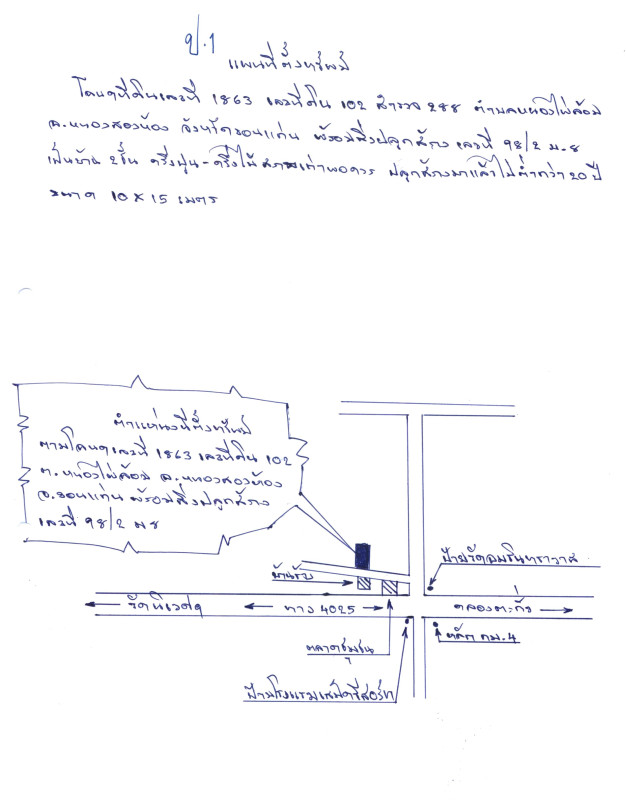 ป.1
แผนที่ตั้งทรัพย์
โฉนดที่ดินเลขที่ 1863 เลขที่ดิน 102 สำรวจ 288 ตำบลหนองไผ่ล้อม
อ.หนองสองห้อง จังหวัดขอนแก่น พร้อมสิ่งปลูกสร้าง เลขที่ 98/2 ม.8
เป็นบ้าน 2ชั้น ครึ่งปูน-ครึ่งไม้ สภาพเก่าพอควร ปลูกสร้างมาแล้วไม่ต่ำกว่า 20 ปี
ขนาด 10 x 15 เมตร
ตำแหน่งที่ตั้งทรัพย์
ตามโฉนดเลขที่ 1863 เลขที่ดิน 102
ต.หนองไผ่ล้อม อ.หนองสองห้อง
จ.ขอนแก่น พร้อมสิ่งปลูกสร้าง
เลขที่ 98/2 ม 8
ป้ายวัดอมรินทราวาส
บ้านรับ
วัดนิเวศน์
ทาง 4025
คลองตะกั่ว
ตลาดชุมชน
หลัก กม.4
ป้ายโรงแรม